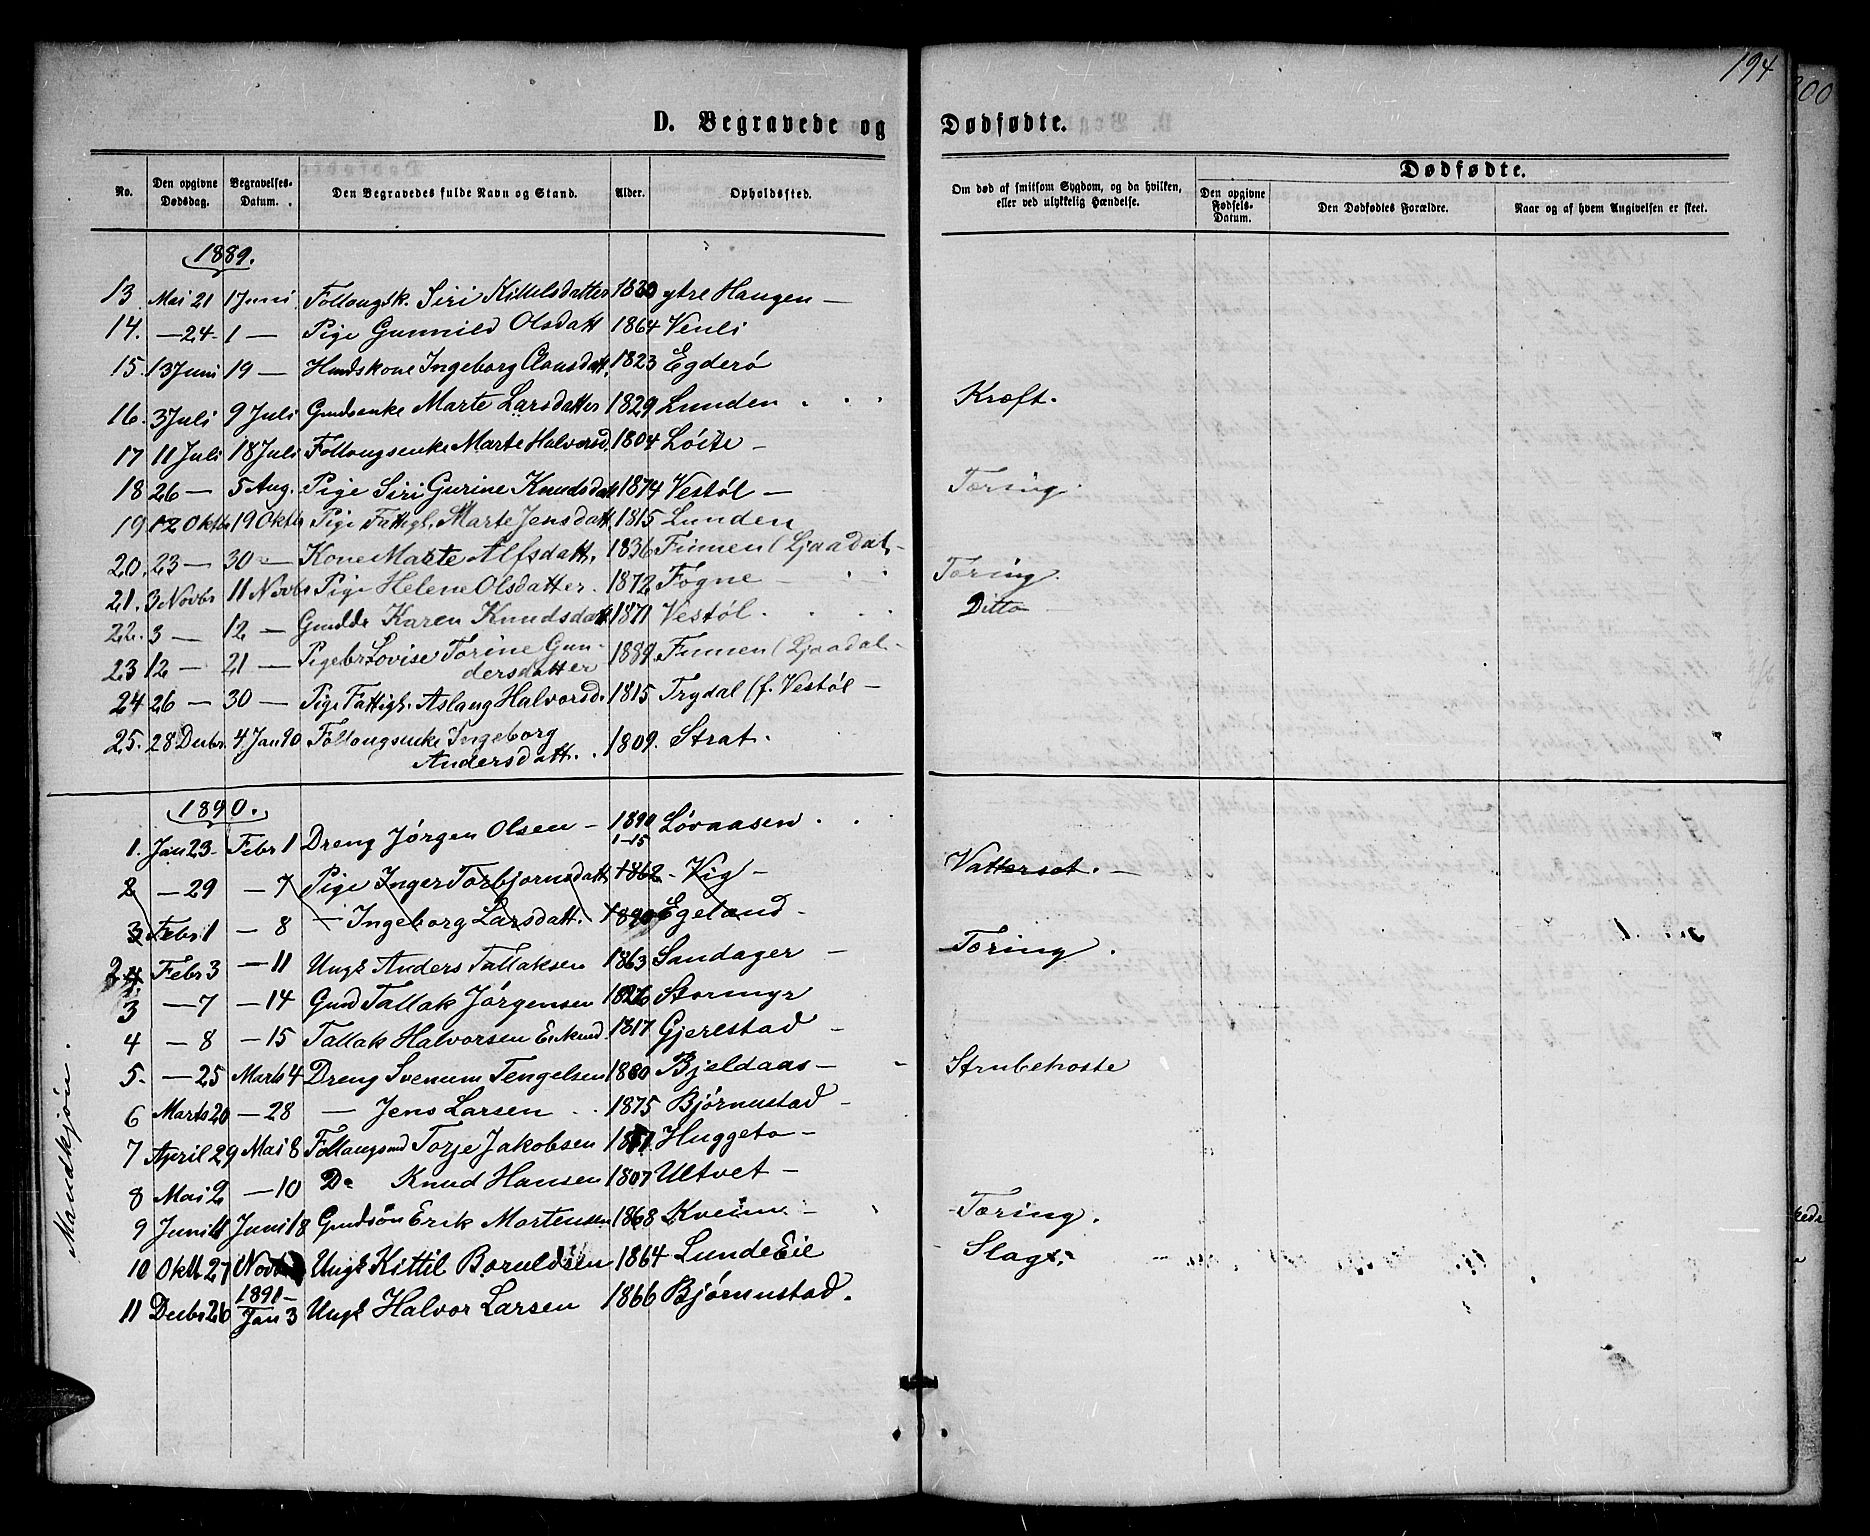 194
200
D. Begravede og Dødfødte.
No. Den opgivne Dødsdag. Begravelses-Datum. Den Begravedes fulde Navn og Stand. Alder. Opholdssted. Om død af smitsom Sygdom, og da hvilken, eller ved ulykkelig Hændelse. Dødfødte. Den opgivne Fødsels-Datum. Den Dødfødtes Forældre. Naar og af hvem Angivelsen er skeet.
1889.
13 Mai 21 1 Juni Follougsk. Siri Kittelsdatter 1830 ytre Haugen —
14. — 24 - 1 — Pige Gunnild Olsdatt 1864 Venli
15. 13 Juni 19 — Huuskone Ingeborg Clausdatt. 1823 Egderö
16. 3 Juli 9 Juli Gmdsenke Marte Larsdatter 1829 Lunden . . . Kræft.
17 11 Juli 18 Juli Follougsenke Marte Halvorsd. 1804 Löite —
18 26 — 5 Aug. Pige Siri Gurine Knudsdatt 1874 Vestöl — Tæring.
19 12 Oktb 19 Oktb Pige Fattigl. Marte Jensdatt 1815 Lunden
20. 23 — 30 — Kone Marte Alfsdatt. 1836 Finnen (Ljaadal -
21. 3 Novbr 11 Novbr Pige Helene Olsdatter. 1872 Fogne — . . Tæring.
22. 3 — 12 — Gmddr Karen Knudsdatt 1871 Vestöl . . . Ditto
23 12 — 21 — Pigebr Lovise Torine Gun-
dersdatter 1889 Finnen (Ljaadal -
24 26 — 30 — Pige Fattigl. Aslaug Halvorsd. 1815 Trydal (f. Vestöl —
25. 28 Decbr. 4 Jan 90 Follougsenke Ingeborg
Andersdatt. . 1809. Strat.
1890.
1. Jan 23 - Febr 1 Dreng Jörgen Olsen — 1890
1-15 Lövaasen . .
2 — 29 — 7 Pige Inger Torbjornsdatt 1862 - Vig — Vattersot. —
3 Febr 1 — 8 — Ingeborg Larsdatt. 1890 Egeland -
2 4 Febr 3 — 11 Ungk Anders Tallaksen 1863 Sandager — Tæring.
3 — 7 — 14 Gmd Tallak Jörgensen 1826 Storemyr
4 — 8 — 15 Tallak Halvorsen Enkemd. 1817 Gjerestad -
5. — 25 Marts 4 Dreng Svenum Tengelsen 1880 Bjeldaas — Strubehoste
6 Marts 20 — 28 — Jens Larsen . . 1875 Björnustad -
7 April 29 Mai 8 Follougsmd Torje Jakobsen Huggeto —
8 Mai 2 — 10 Do Knud Hansen 1807 Ultvet —
9 Juni 11 Juni 18 Gmdsön Erik Mortensen 1868 Kveim — - Tæring.
10 Oktb 27 Novb Ungk Kittil Boruldsen 1864 Lunde Eie - Slag
11 Decbr 26 1891-
Jan 3 Ungk Halvor Larsen 1866 Björnustad.
Mandkjön.